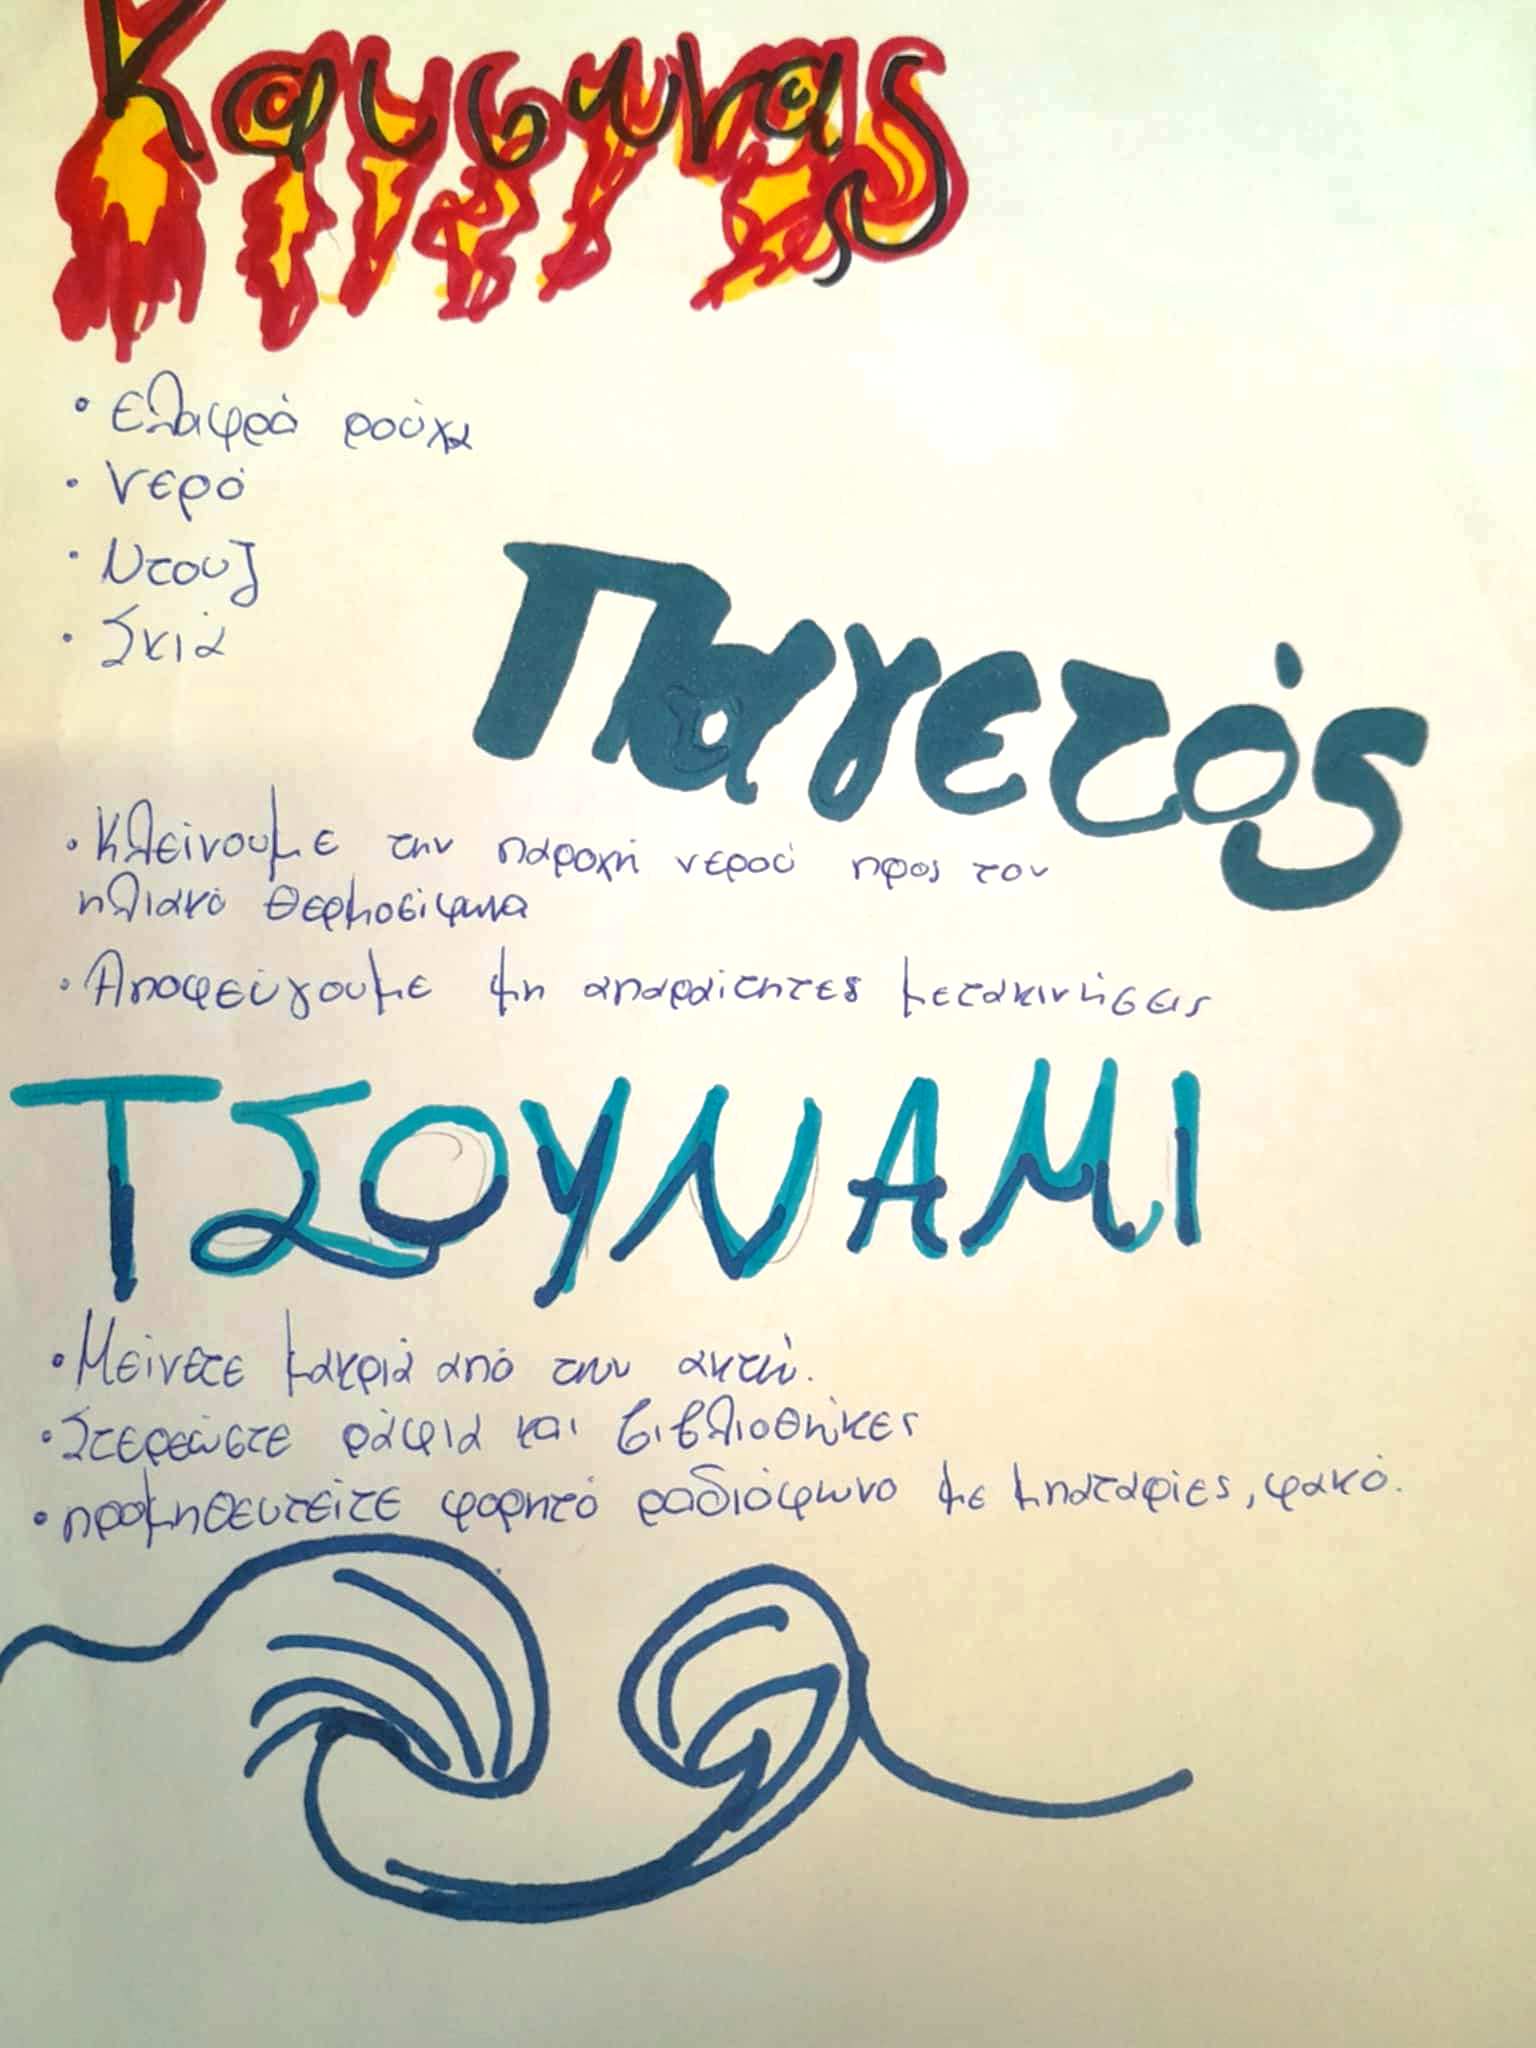 Καυσωνας
• Ελαφρά ρούχα
• Νερό
• Ντουζ
• Σκιά
Παγετός
• Κλείνουμε την παροχή νερού προς τον
ηλιακό θερμοσίφωνα
• Αποφεύγουμε μη απαραίτητες μετακινήσεις
ΤΣΟΥΝΑΜΙ
• Μείνετε μακριά από την ακτή.
• Στερεώστε ράφια και βιβλιοθήκες
• προμηθευτείτε φορητό ραδιόφωνο με μπαταρίες, φακό.